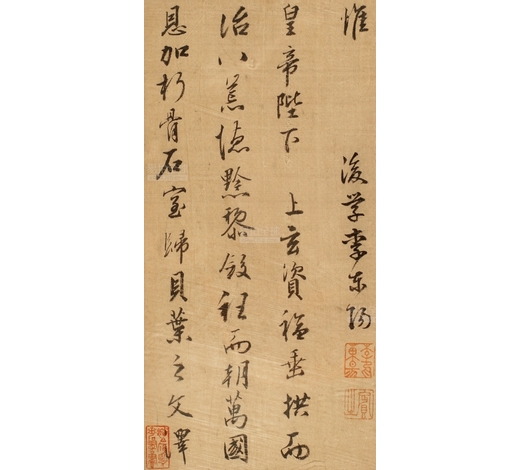 惟
後學李東陽
皇帝陛下 上玄資福垂拱而
治八荒德黔黎斂衽而朝萬國
恩加朽骨石室歸貝葉之文澤
賓之